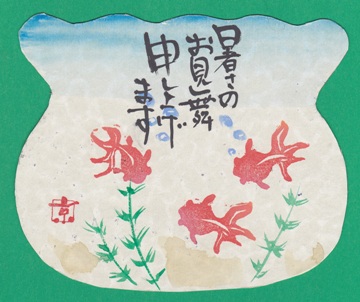 暑さの
お見舞
申し上げ
ます